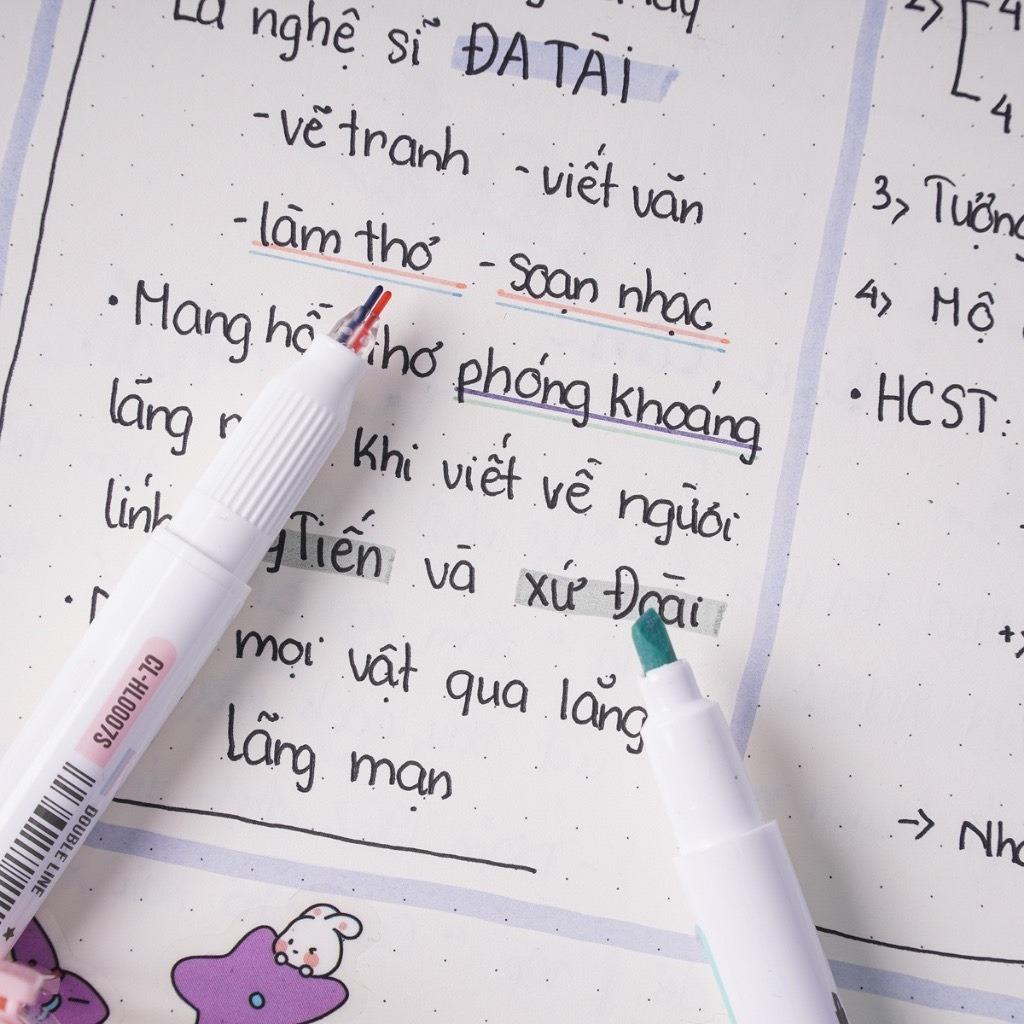 Là nghệ sĩ ĐA TÀI
- vẽ tranh - viết văn
- làm thơ - soạn nhạc
• Mang hồ thơ phóng khoáng
lãng khi viết về người
lính Tiến và xứ Đoài
mọi vật qua lăng
lãng mạn
4
3>
4> Mộ
• HCST:
→
CL-HL0007S
DOUBLE LINE